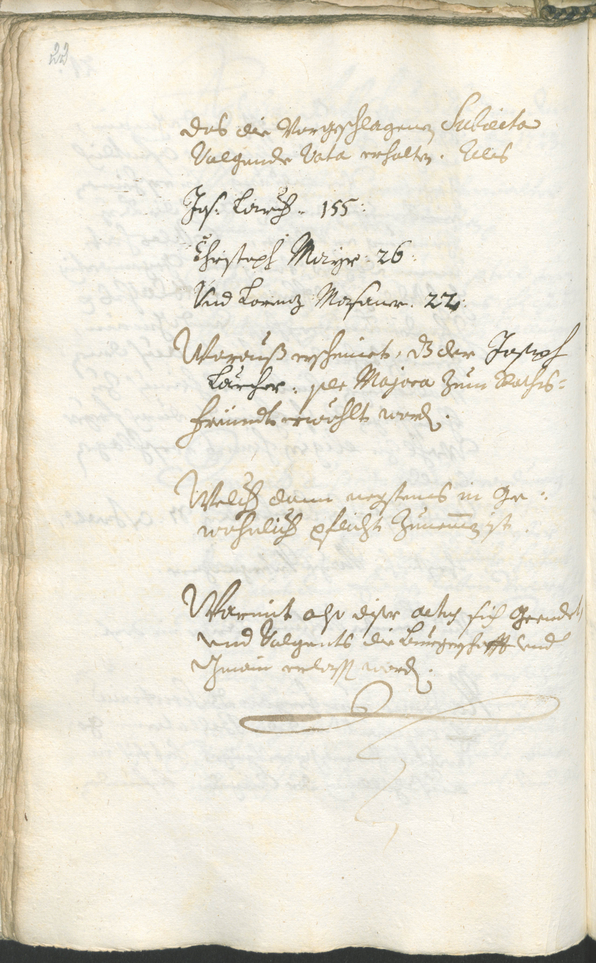 22
das die Vorgeschlagenen Subiecta
Volgende Vota erhalten. Als
Jos: Larch. 155:
Christoph Mayr: 26:
Vnd Lorenz Mosauer. 22.
Worauß erscheinet, dz der Joseph
Larcher. per Majora zum Raths=
freundt erwöhlt word.
Welch dann negstens in Ge=
wohnlich pflicht Zunemen ist.
Warmit also diser actus sich geendet
vnd Volgents die Burgerschafft vnd
Gmain erlasst word.